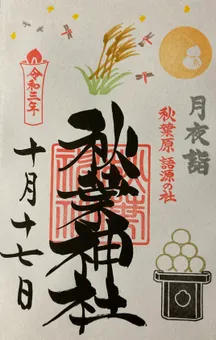 月夜詣
秋葉原 語源の社
令和三年
秋葉神社
十月十七日